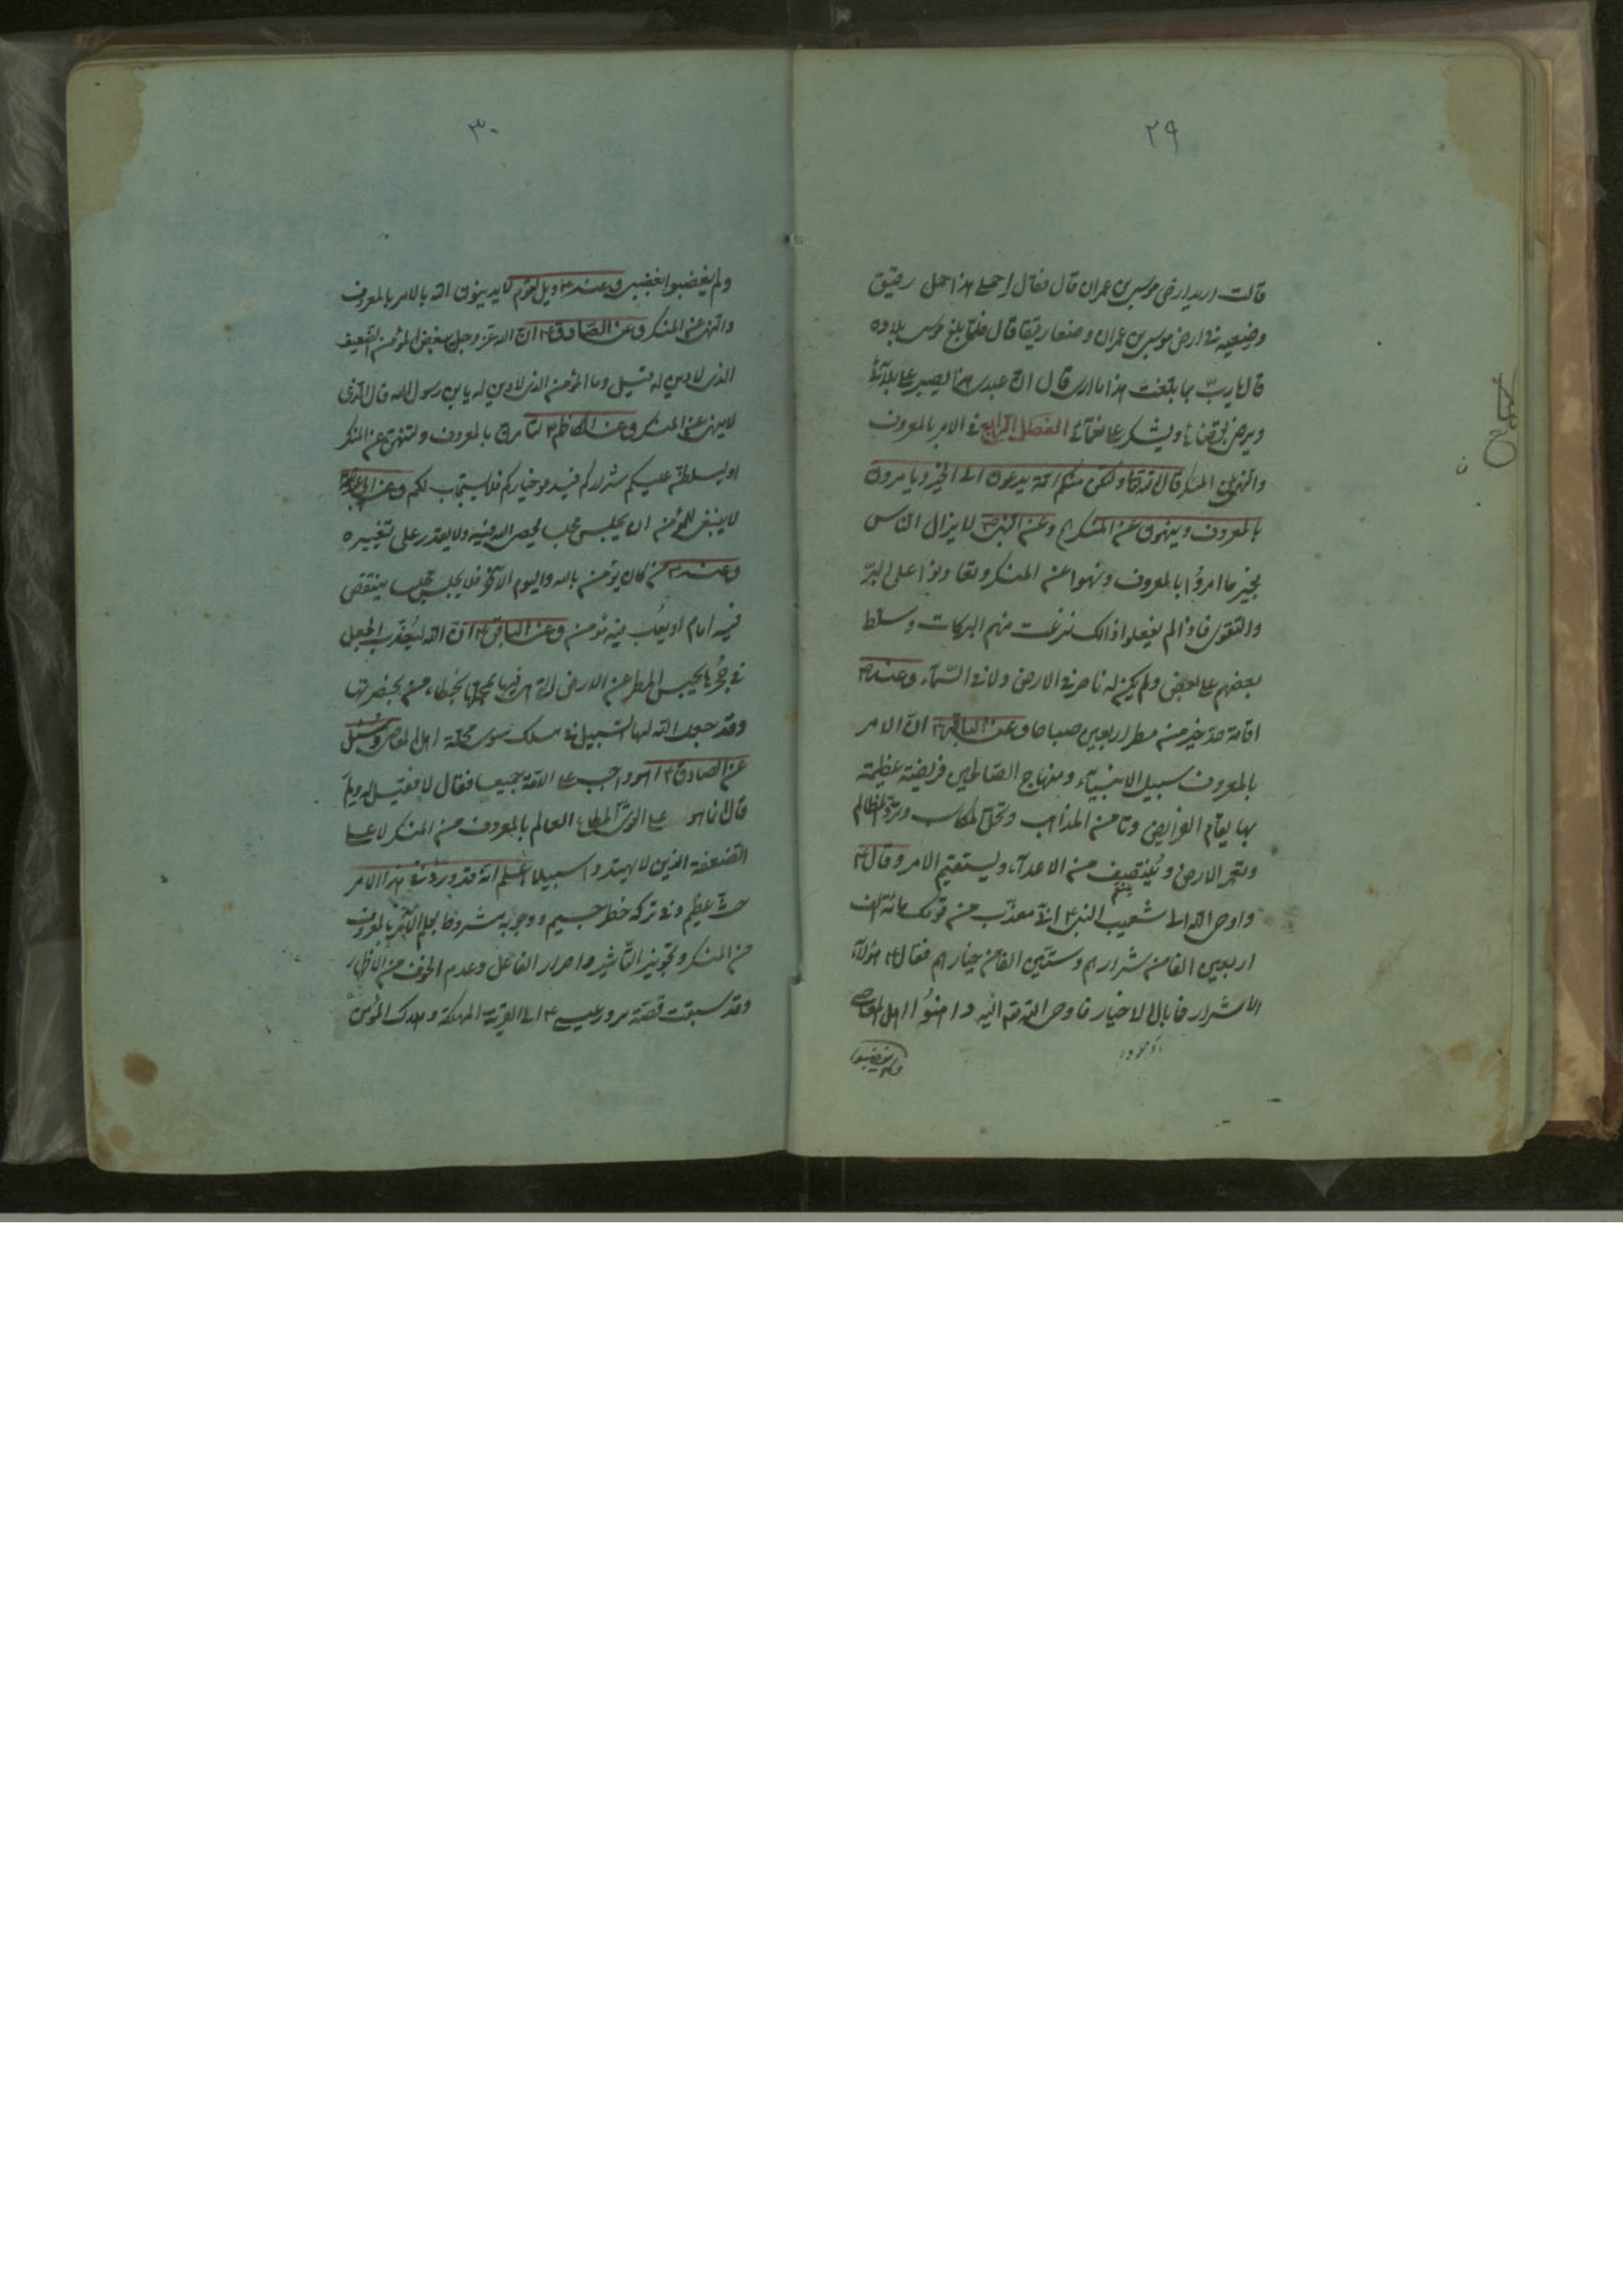 ٢٩
قالت اريد ارض موسى بن عمران قال فقال احملى هذا حمل رفيق
وضعيه فى ارض موسى بن عمران وضعا رفيقا قال فلما بلغ موسى بلاده
قال يا رب بما بلغت هذا ما ارى قال ان عبدى هذا يصبر على بلائى
ويرضى بقضائى ويشكر على نعمائى الفصل الرابع فى الامر بالمعروف
والنهى عن المنكر قال الله تعالى ولتكن منكم امة يدعون الى الخير ويامرون
بالمعروف وينهون عن المنكر وعن النبى ص لا يزال الناس
بخير ما امروا بالمعروف ونهوا عن المنكر وتعاونوا على البرّ
والتقوى فاذا لم يفعلوا ذالك نزعت منهم البركات وسلط
بعضهم على بعض ولم يكن له ناصر فى الارض ولا فى السّمآء وعنه ص
اقامة حدّ خير من مطر اربعين صباحا وعن الباقر ع انّ الامر
بالمعروف سبيل الانبيآء ومنهاج الصّالحين فريضة عظيمة
بها يقام الفرايض وتامن المذاهب وتحلّ المكاسب وتردّ المظالم
وتعمر الارض وينتصف من الاعدآء ويستقيم الامر وقال ع
واوحى الله الى شعيب النبى ع انّى معذّب من قومك مائة الف
اربعين الفا من شرارهم وستّين الفا من خيارهم فقال ع هؤلآء
الاشرار فما بال الاخيار فاوحى الله عز اليه داهنوا اهل المعاصى
ولم يغضبوا
٣٠
ولم يغضبوا لغضبى وعنه ع ويل لقوم لا يدينون الله بالامر بالمعروف
والنهى عن المنكر وعن الصّادق ع انّ الله عزّ وجل يبغض المؤمن الضّعيف
الذى لا دين له قيل وما المؤمن الذى لا دين له يابن رسول الله قال الّذى
لا ينهى عن المنكر وعن الكاظم ع لتامرنّ بالمعروف ولتنهنّ عن المنكر
او ليسلطنّ عليكم شراركم فيدعو خياركم فلا يستجاب لكم وعن
لا ينبغى للمؤمن ان يجلس مجلسا يعصى الله فيه ولا يقدر على تغييره
وعنه ع من كان يؤمن بالله واليوم الآخر فلا يجلس مجلسا ينتقص
فيه امام او يعاب فيه مؤمن وعن الباقر ع انّ الله ليعذّب الجعل
فى جحرها بحبس المطر عن الارض التى هى فيها بمحلها بخطاء من بحضرتها
وقد جعل الله لها السّبيل فى مسلك سوى محلّة اهل المعاصى وسئل
عن الصادق ع اهو واجب على الامّة جميعا فقال لا فقيل له ولم
قال انما هو على القوىّ المطاع العالم بالمعروف من المنكر لا على
الضعفة الذين لا يهتدون سبيلا اعلم انّه قد ورد فى هذا الامر
حثّ عظيم وفى تركه خطر جسيم ووجوبه مشروط بعلم الآمر بالمعروف
من المنكر وتجويز التّأثير واصرار الفاعل وعدم الخوف من الاظهار
وقد سبقت قصّة مرور عيسى ع الى القرية المهلكة وهلاك المؤمن